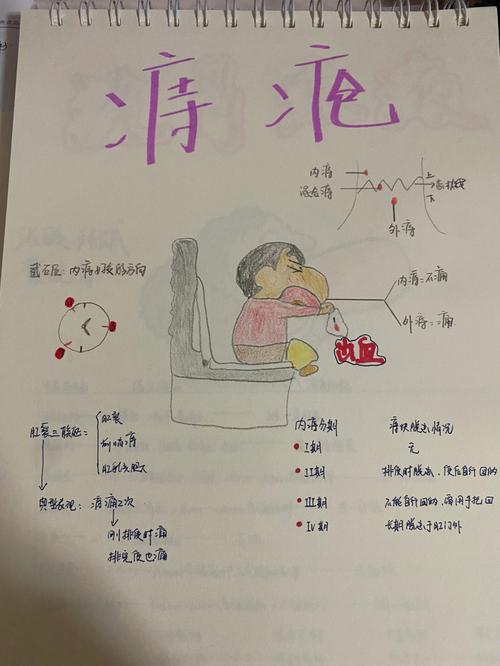 痔疮
内痔
混合痔
上
齿状线
下
外痔
截石位:内痔好发的方向
内痔:不痛
外痔:痛
出血
肛裂三联征:
肛裂
前哨痔
肛乳头肥大
典型表现:疼痛2次
刚排便时痛
排完便也痛
内痔分期 痔块脱出情况
I期 无
II期 排便时脱出,便后自行回纳
III期 不能自行回纳,需用手托回
IV期 长期脱出于肛门外